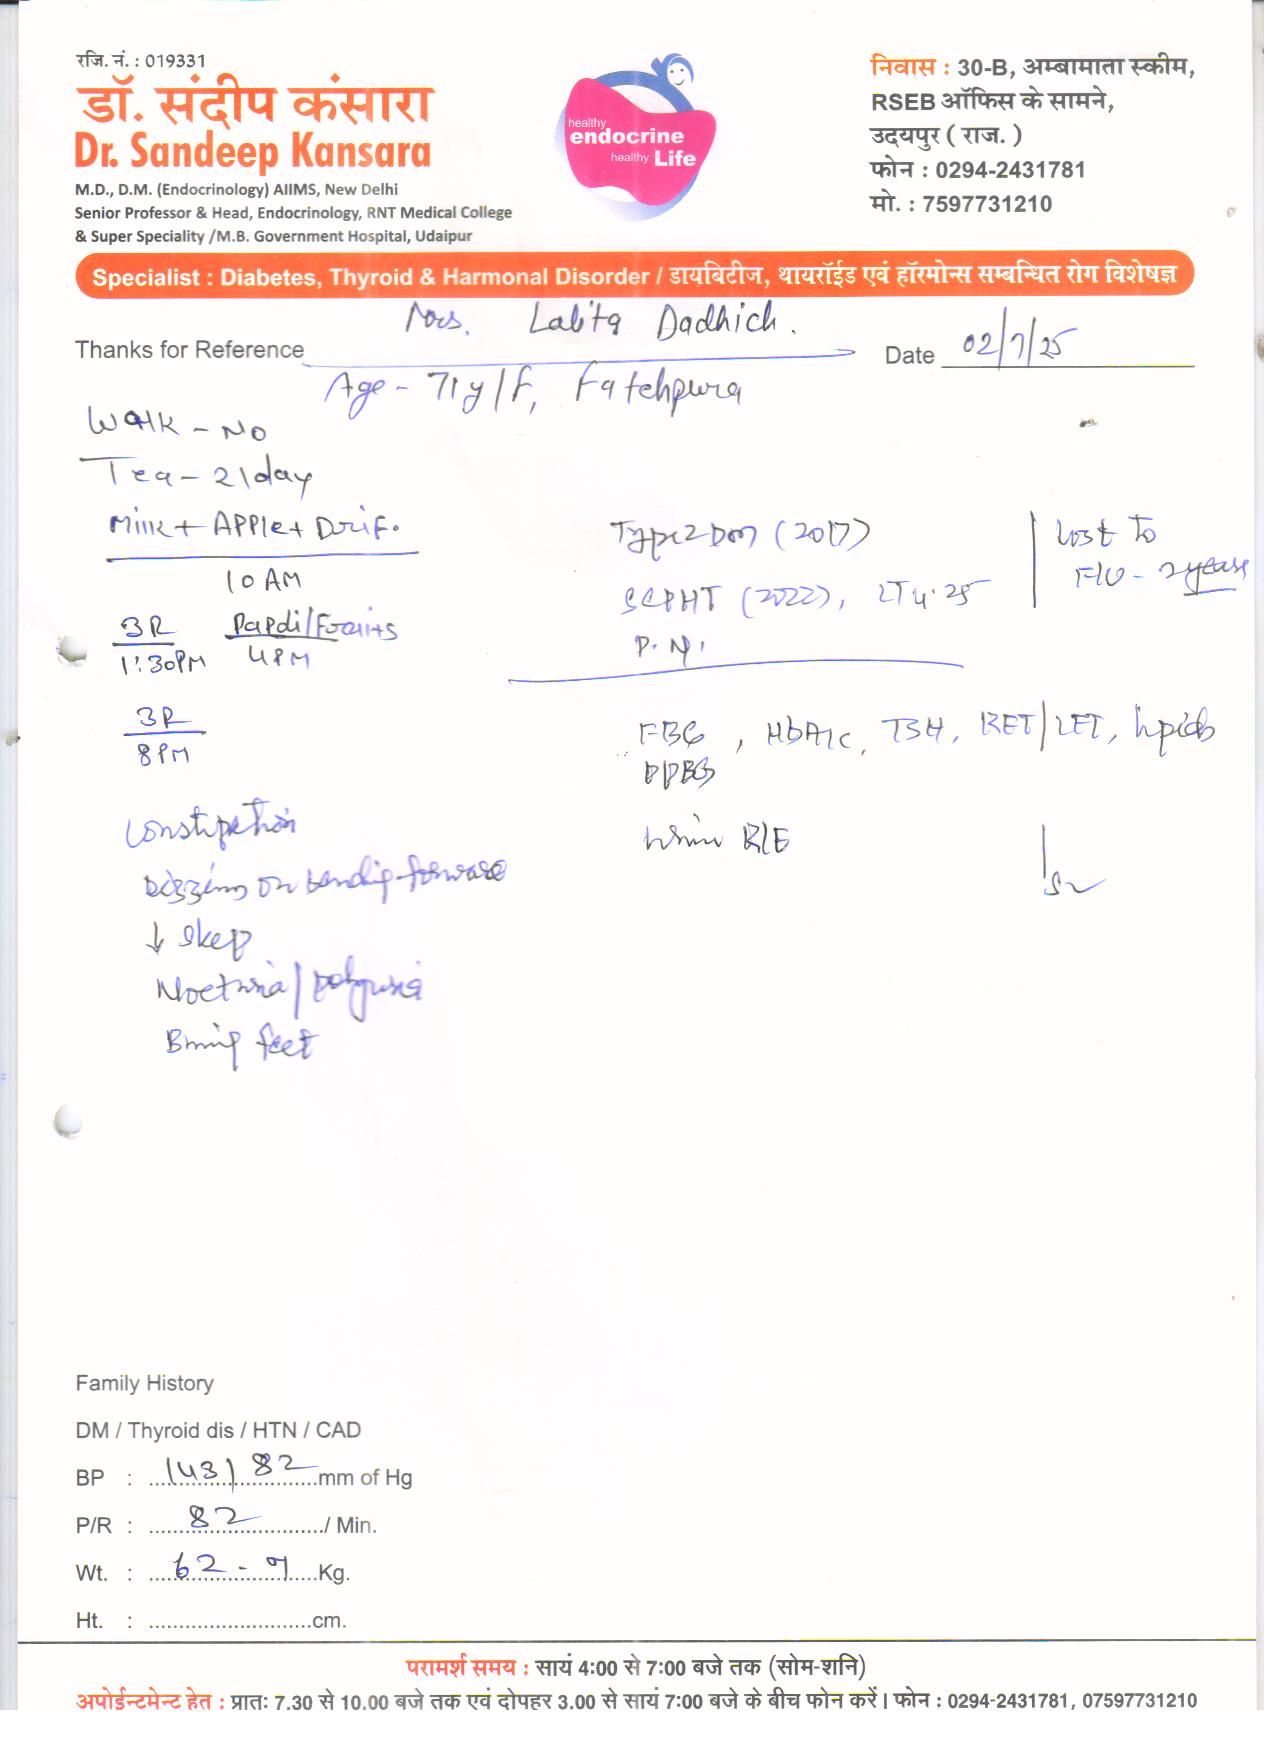 रजि. नं. : 019331
डॉ. संदीप कंसारा
Dr. Sandeep Kansara
M.D., D.M. (Endocrinology) AIIMS, New Delhi
Senior Professor & Head, Endocrinology, RNT Medical College
& Super Speciality /M.B. Government Hospital, Udaipur
healthy
endocrine
healthy Life
निवास : 30-B, अम्बामाता स्कीम,
RSEB ऑफिस के सामने,
उदयपुर ( राज. )
फोन : 0294-2431781
मो. : 7597731210
Specialist : Diabetes, Thyroid & Harmonal Disorder / डायबिटीज, थायरॉईड एवं हॉरमोन्स सम्बन्धित रोग विशेषज्ञ
Mrs. Lalita Dadhich.
Thanks for Reference
Date 02/7/25
Age - 71y/F, Fatehpura
Walk - NO
Tea - 2\day
Milk + APPle +
10 AM
3R
1:30PM
Papdi/Fruits
4PM
3R
8PM
Type 2 DM (2017)
SCPHT (2022), LT4.25
P.N.
Lost to
F/U - 2 years
FBG, HbA1c, TSH, RFT/LFT, lipids
PPBG
Urine R/E
Constipation
on bending forward
↓ sleep
Nocturia/polyuria
Burning feet
Family History
DM / Thyroid dis / HTN / CAD
BP : 143/82 mm of Hg
P/R : 82 / Min.
Wt. : 62-9 Kg.
Ht. : cm.
परामर्श समय : सायं 4:00 से 7:00 बजे तक (सोम-शनि)
अपोईन्टमेन्ट हेत : प्रातः 7.30 से 10.00 बजे तक एवं दोपहर 3.00 से सायं 7:00 बजे के बीच फोन करें। फोन : 0294-2431781, 07597731210